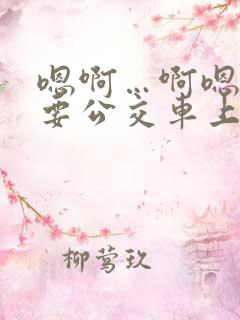 嗯啊…啊嗯
要公交车上
柳莺玖